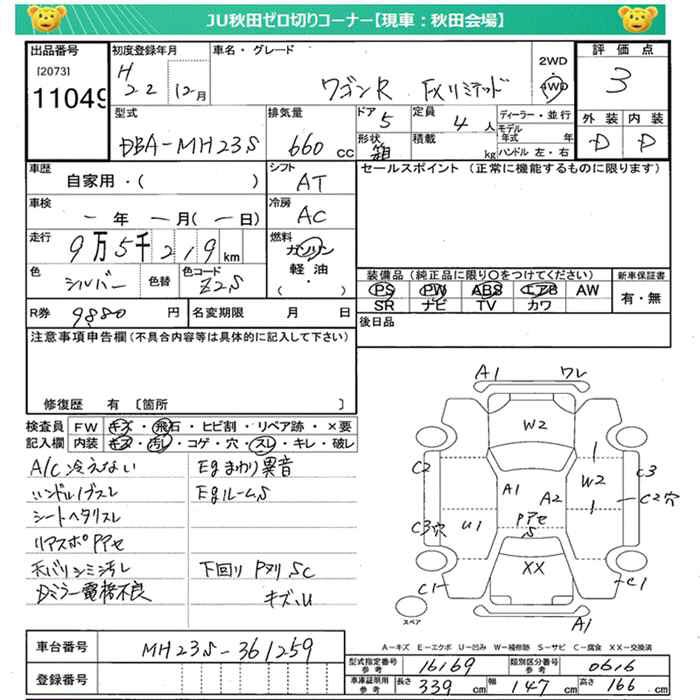 JU秋田ゼロ切りコーナー【現車：秋田会場】
出品番号
[2073]
11049
初度登録年月
H
22 12月
車名・グレード
ワゴンR FXリミテッド
2WD
4WD
評価点
3
外装 内装
D D
型式
DBA-MH23S
排気量
660 cc
ドア
5
形状
箱
定員
4人
積載
kg
ディーラー・並行
モデル年式 年
ハンドル 左・右
車歴
自家用・( )
シフト
AT
セールスポイント (正常に機能するものに限ります)
車検
ー年ー月(ー日)
冷房
AC
走行
9万5千219km
燃料
ガソリン
軽油
・
( )
色
シルバー
色替
色コード
Z2S
装備品 (純正品に限り○をつけてください)
PS PW ABS エアB AW
SR ナビ TV カワ
新車保証書
有・無
R券 9880 円
名変期限 月 日
後日品
注意事項申告欄(不具合内容等は具体的に記入して下さい)
修復歴 有 〔箇所 〕
検査員 FW キズ・飛石・ヒビ割・リペア跡・×要
記入欄 内装 キズ・汚レ・コゲ・穴・スレ・キレ・破レ
A/C冷えない Egまわり異音
ハンドルイブスレ EgルームS
シートヘタリスレ
リアスポPアセ
天バリシミ汚レ 下回り Pヌリ SC
Dミラー電格不良 キズ、U
A1 ワレ
W2
C2 C3
A1 A2 W2 C2穴
C3穴 U1
Pアセ
S
XX
C1 C1
A1
スペア
A－キズ E－エクボ U－凹み W－補修跡 S－サビ C－腐食 XX－交換済
車台番号 MH23S-361259
登録番号
型式指定番号
参考
16169
類別区分番号
参考
0616
車庫証明用
参考
長さ 339 cm 幅 147 cm 高さ 166 cm